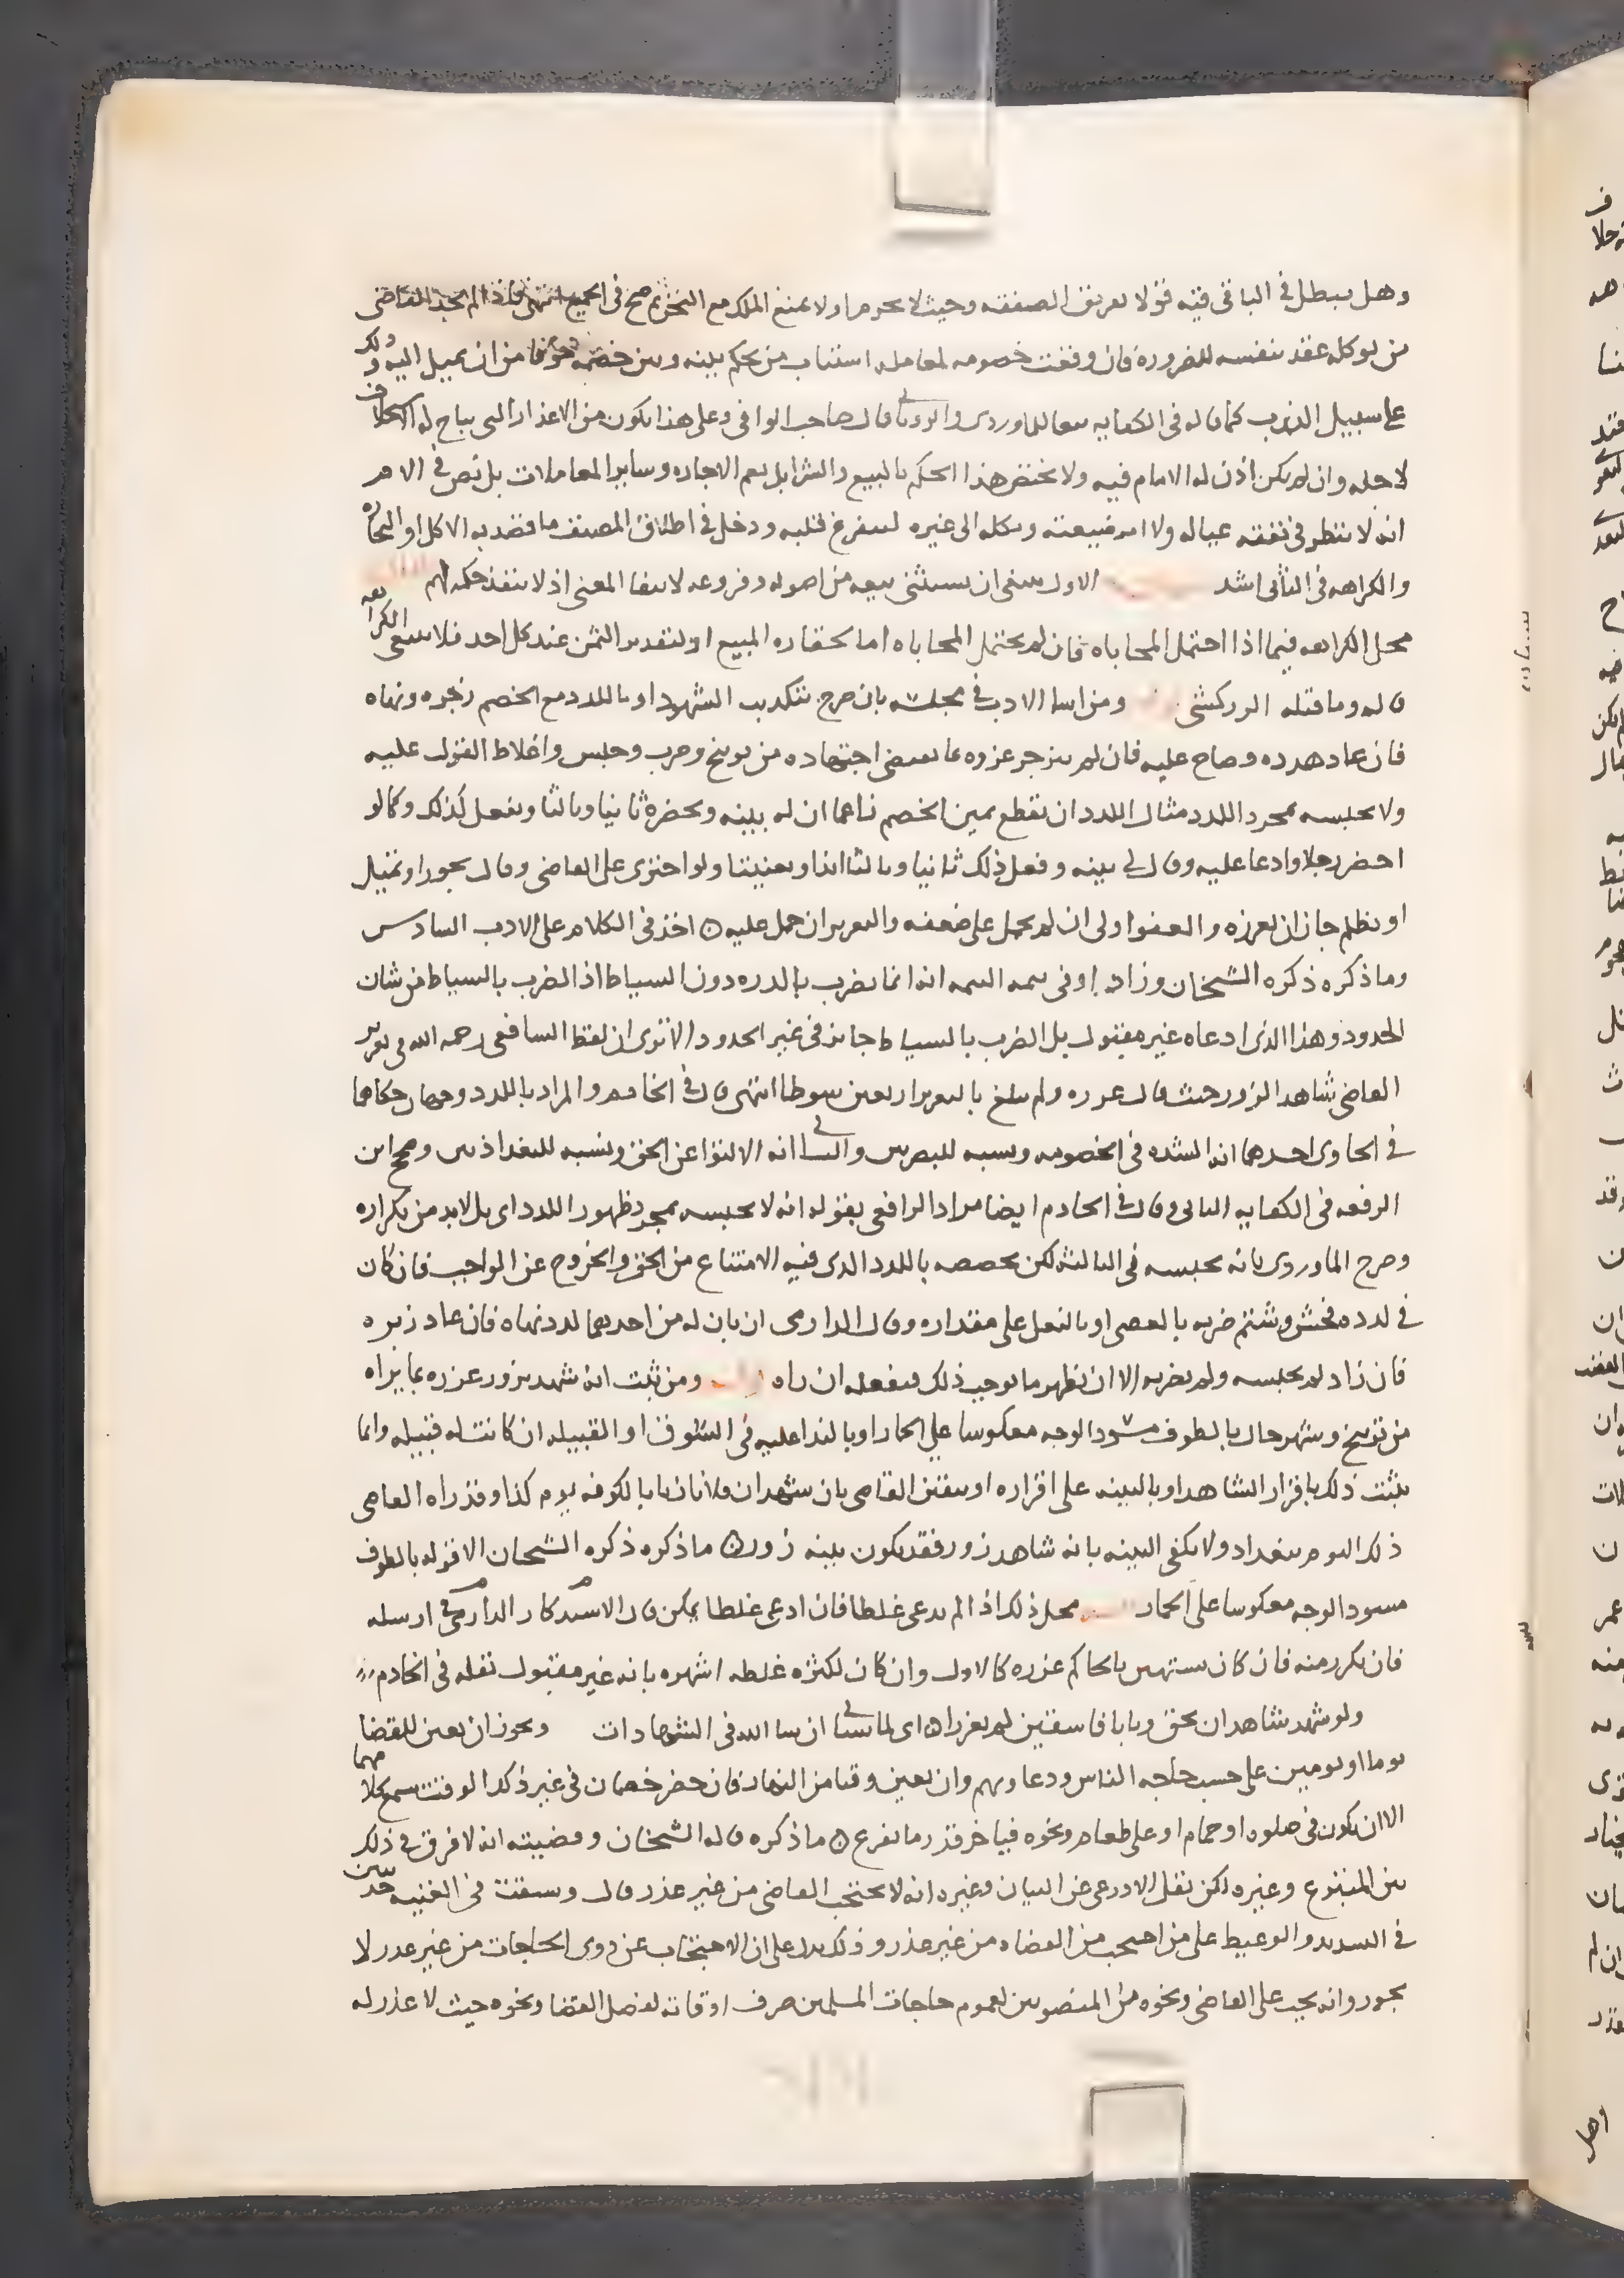 وهل يبطل في الباقي فيه قولا تفريق الصفقه وحيث لا يحرم اولا يمنع الملك مع التحريم صح في الجميع انتهى فاذا لم يجد القاضي
من يوكله عقد بنفسه للضرورة فان وقعت خصومه لمعامله استناب من يحكم بينه وبين خصمه خوفا من ان يميل اليه وذلك
على سبيل الندب كما قاله في الكفايه تبعا للماوردي والروياني قال صاحب الوافي وعلى هذا يكون من الاعذار التي يباح له الاستخلاف
لاجله وان لم يكن اذن له الامام فيه ولا يختص هذا الحكم بالبيع والشرا بل يعم الاجاره وساير المعاملات بل نص في الام
انه لا ينظر في نفقه عياله ولا امر ضيعته ويكله الى غيره ليتفرغ قلبه ودخل في اطلاق المصنف ما قصد به الاكل او التجاره
والكراهه في الثاني اشد الاول ينبغي ان يستثنى بيعه من اصوله وفروعه لانتفا المعنى اذ لا ينفذ حكمه لهم
محل الكراهه فيما اذا احتمل المحاباه فان لم يحتمل المحاباه اما لحقاره المبيع او لتقدير الثمن عند كل احد فلا ينبغي الكراهه
قاله وما قبله الزركشي ومن اسا الادب في مجلسه بان صرح بتكذيب الشهود او باللدد مع الخصم زجره ونهاه
فان عاد هدده وصاح عليه فان لم ينزجر عزره بما يقتضي اجتهاده من توبيخ وضرب وحبس واغلاظ القول عليه
ولا يحبسه بمجرد اللدد مثال اللدد ان تقطع يمين الخصم زاعما ان له بينه ويحضره ثانيا وثالثا ويفعل كذلك وكما لو
احضر رجلا وادعا عليه وقال لي بينه وفعل ذلك ثانيا وثالثا ايذا وتعنيتا ولو اجترى على القاضي وقال يجور او تميل
او تظلم جاز ان يعزره والعفو اولى ان لم يحمل على ضعفه والتعزير ان حمل عليه ۞ اخذ في الكلام على الادب السادس
وما ذكره ذكره الشيخان وزاد او في تتمه التتمه انه انما يضرب بالدره دون السياط اذ الضرب بالسياط من شان
الحدود وهذا الذي ادعاه غير مقبول بل الضرب بالسياط جايز في غير الحدود الا ترى ان لفظ الشافعي رحمه الله في تعزير
القاضي شاهد الزور حيث قال عزره ولم يبلغ بالتعزير اربعين سوطا انتهى قال في الخادم والمراد باللدد وجهان حكاهما
في الحاوي احدهما انه الشده في الخصومه ونسبه للبصريين والثاني انه الالتوا عن الحق ونسبه للبغداديين وصحح ابن
الرفعه في الكفايه الثاني وقال في الخادم ايضا مراد الرافعي بقوله انه لا يحبسه بمجرد ظهور اللدد اي بل لابد من تكراره
وصرح الماوردي بانه يحبسه في الثالثه لكن يخصصه باللدد الذي فيه الامتناع من الحق والخروج عن الواجب فان كان
في لدده فحش وشتم ضربه بالعصى او بالنعل على مقداره وقال الدارمي ان بان له من احدهما لدد نهاه فان عاد زبره
فان زاد لم يحبسه ولم يضربه الا ان يظهر ما يوجب ذلك فيفعله ان راه ومن ثبت انه شهد بزور عزره بما يراه
من توبيخ وشهر حاله بالطوف مسود الوجه معكوسا على الحمار او بالندا عليه في السوق او القبيله ان كانت له قبيله وانما
يثبت ذلك باقرار الشاهد او بالبينه على اقراره او يتيقن القاضي بان شهد ان فلانا زنا بالكوفه يوم كذا وقد راه القاضي
ذلك اليوم ببغداد ولا يكفي البينه بانه شاهد زور فقد تكون بينه زور ۞ ما ذكره ذكره الشيخان الا قوله بالطوف
مسود الوجه معكوسا على الحمار محل ذلك اذا لم يدعي غلطا فان ادعى غلطا يمكن قال الاستدكار الدارمي في ارسله
فان تكرر منه فان كان يستهين بالحاكم عزره كالاول وان كان لكثره غلطه اشهره بانه غير مقبول نقله في الخادم
ولو شهد شاهدان بحق وبانا فاسقين لم يعزرا ۞ اي لما سياتي ان شا الله في الشهادات ويجوز ان يعين للقضا
يوما او يومين على حسب حاجه الناس ودعاويهم وان يعين وقتا من النهار فان حضر خصمان في غير ذلك الوقت سمع كلامهما
الا ان يكون في صلوه او حمام او على طعام ونحوه فياخر قدر ما يفرغ ۞ ما ذكره قاله الشيخان وقضيته انه لا فرق في ذلك
بين المتبرع وغيره لكن نقل الاذرعي عن البيان وغيره انه لا يحتجب القاضي من غير عذر قال وسقت في الغنيه حديثين
في التشديد والوعيد على من احتجب من القضاه من غير عذر وذلك يدل على ان الاحتجاب عن ذوي الحاجات من غير عذر لا
يجوز وانه يجب على القاضي ونحوه من المنصوبين لعموم حاجات المسلمين صرف اوقاته لفصل القضا ونحوه حيث لا عذر له